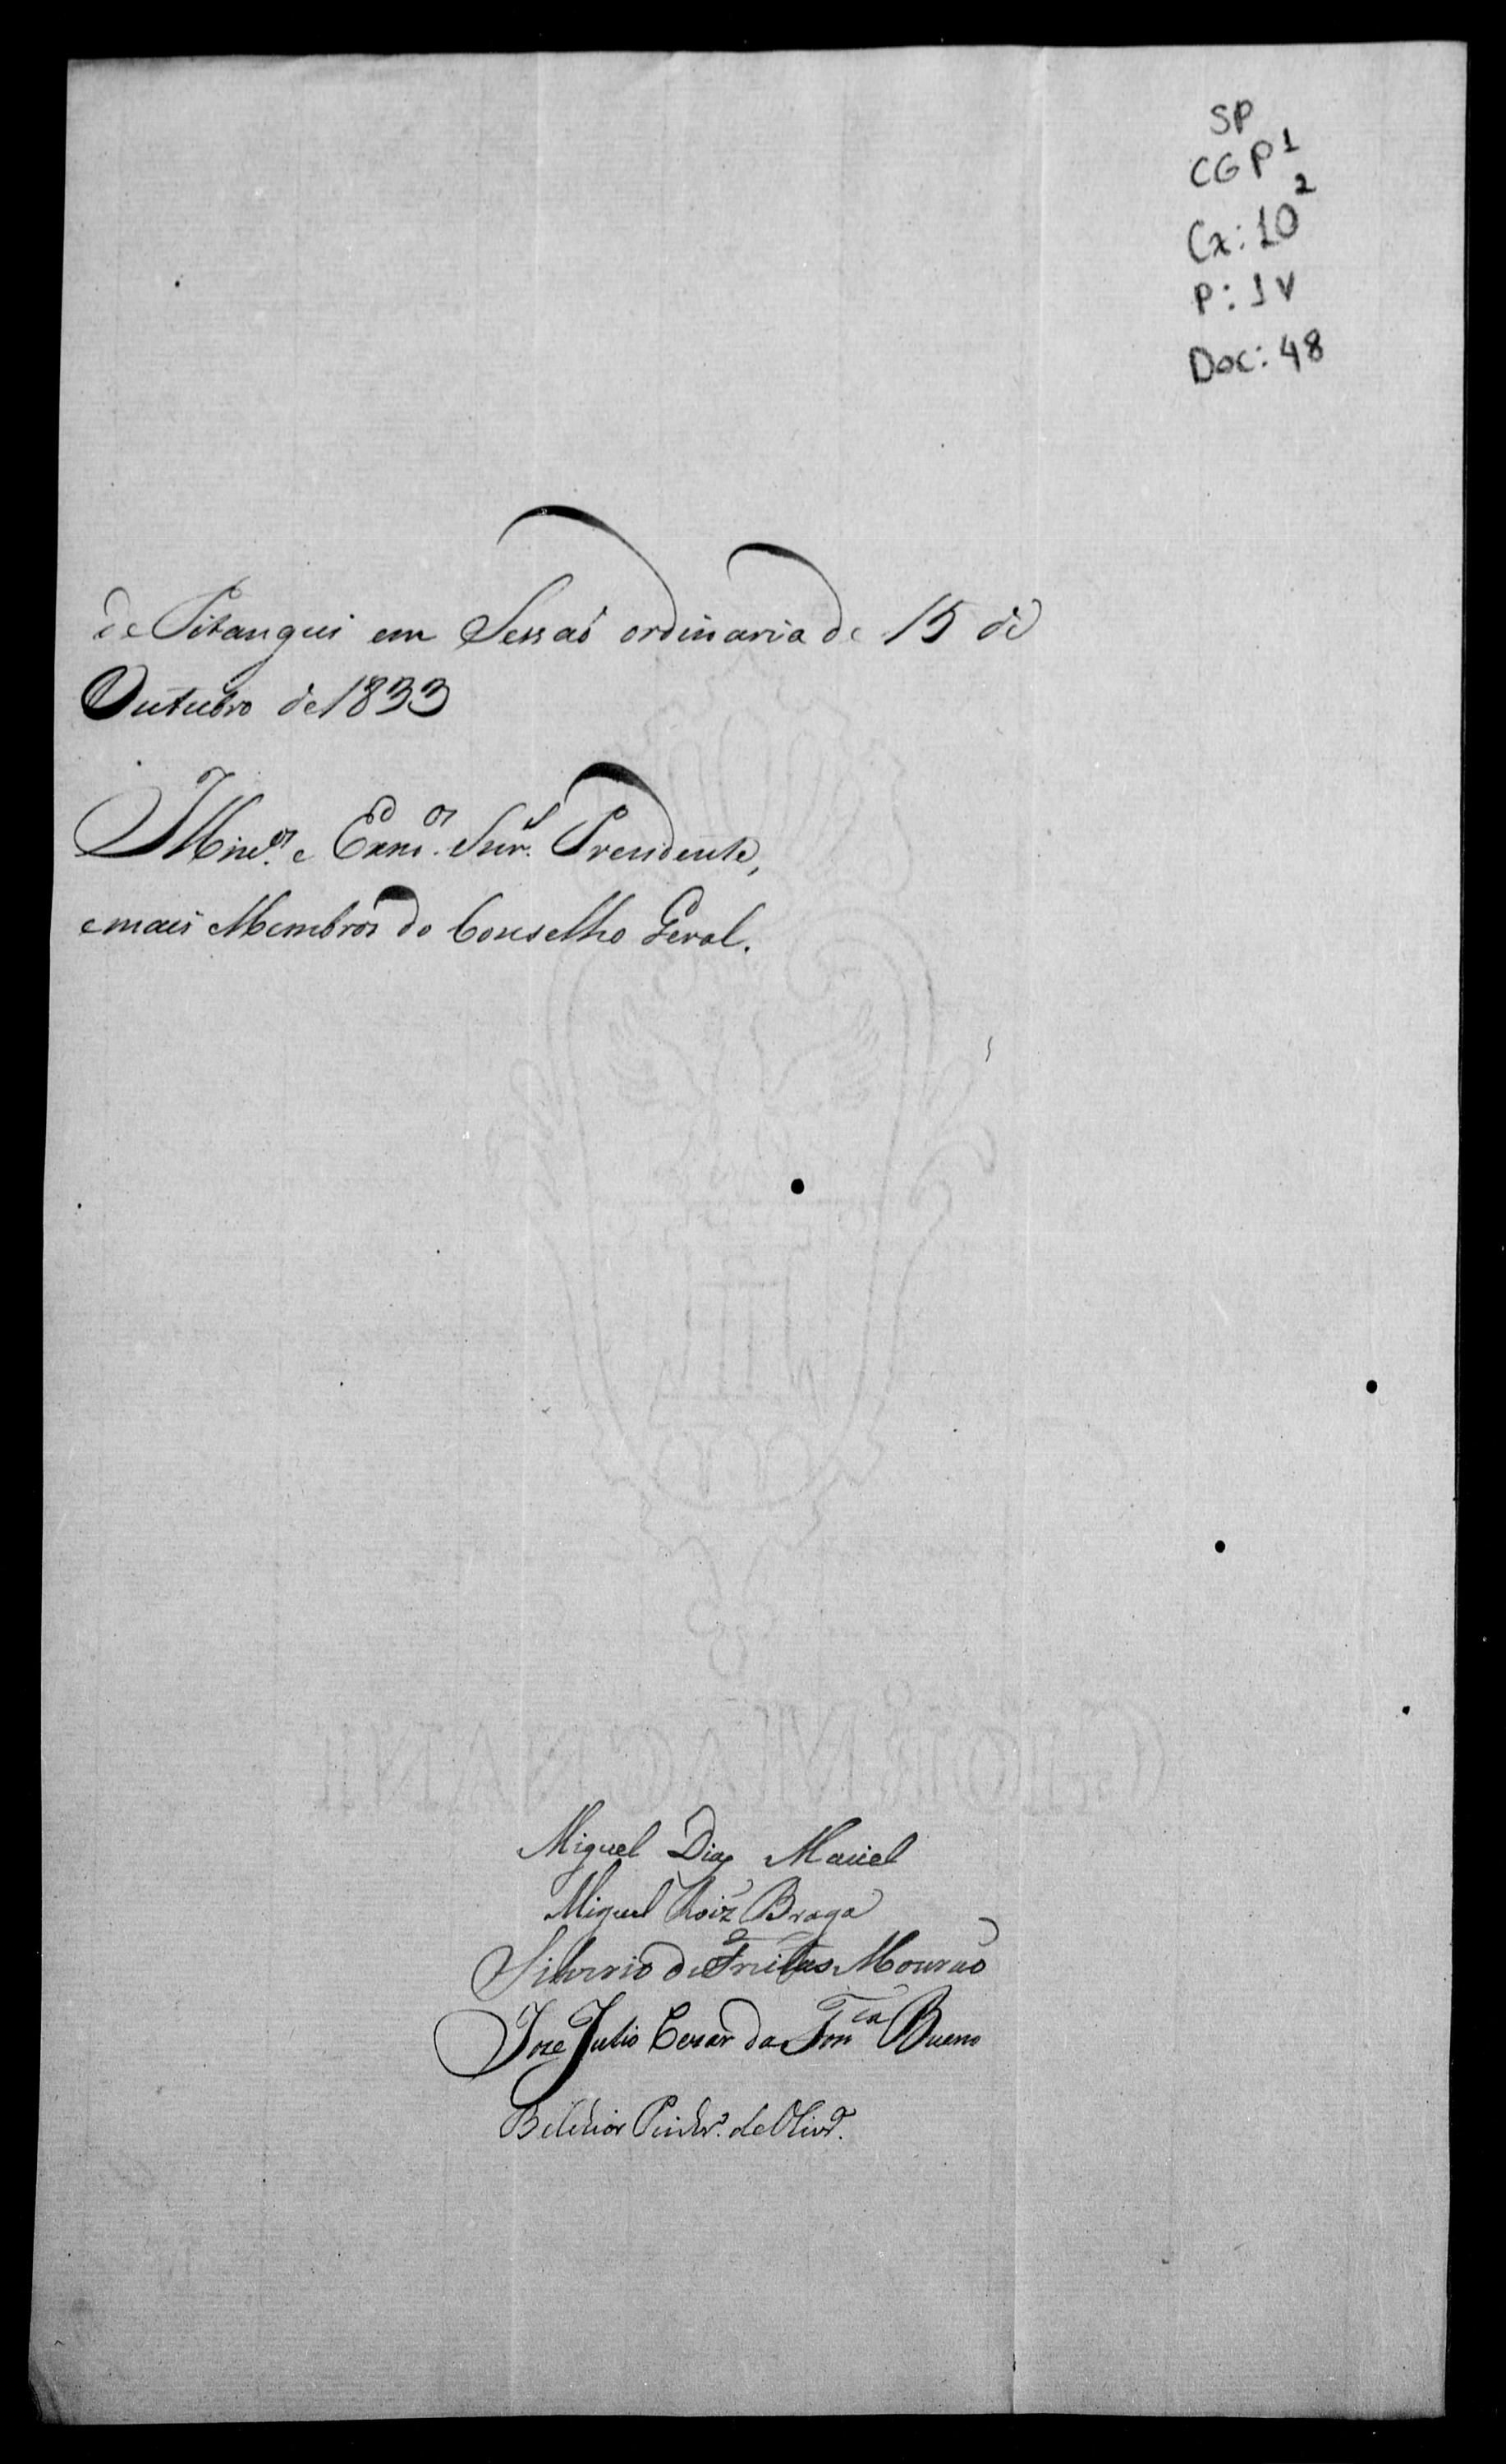 SP
CGP1
Cx: 10 2
P: 1V
Doc: 48
de Pitangui em Sessaõ ordinaria de 15 de
Outubro de 1833
Illmos. e Exmos. Snrs. Presidente,
e mais Membros do Conselho Geral.
GIOR MAGNANI
Miguel Dias Maciel
Miguel Roiz Braga
Silverio de Freitas Mourão
Jose Julio Cesar da Fonca Bueno
Belchior de Olivra.